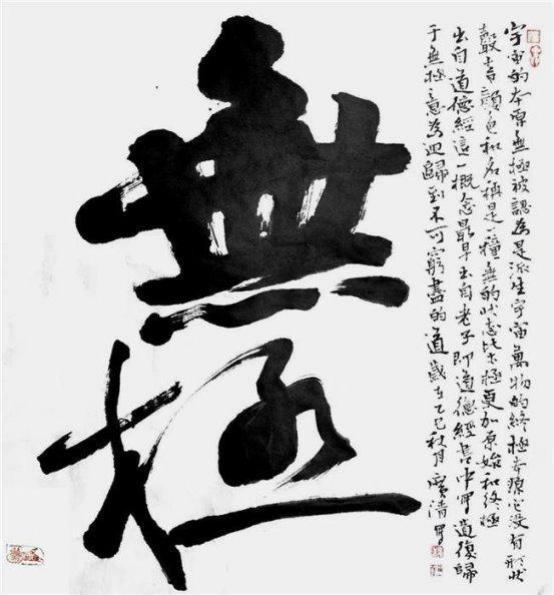 無極
宇宙的本原無極被認為是派生宇宙萬物的終極本源它沒有形狀
聲音顏色和名稱是一種無的狀态比太極更加原始和終極
出自道德經這一概念最早出自老子即道德經書中寫道復歸
于無極意為迴歸到不可窮盡的道歲在乙巳秋月廣清書